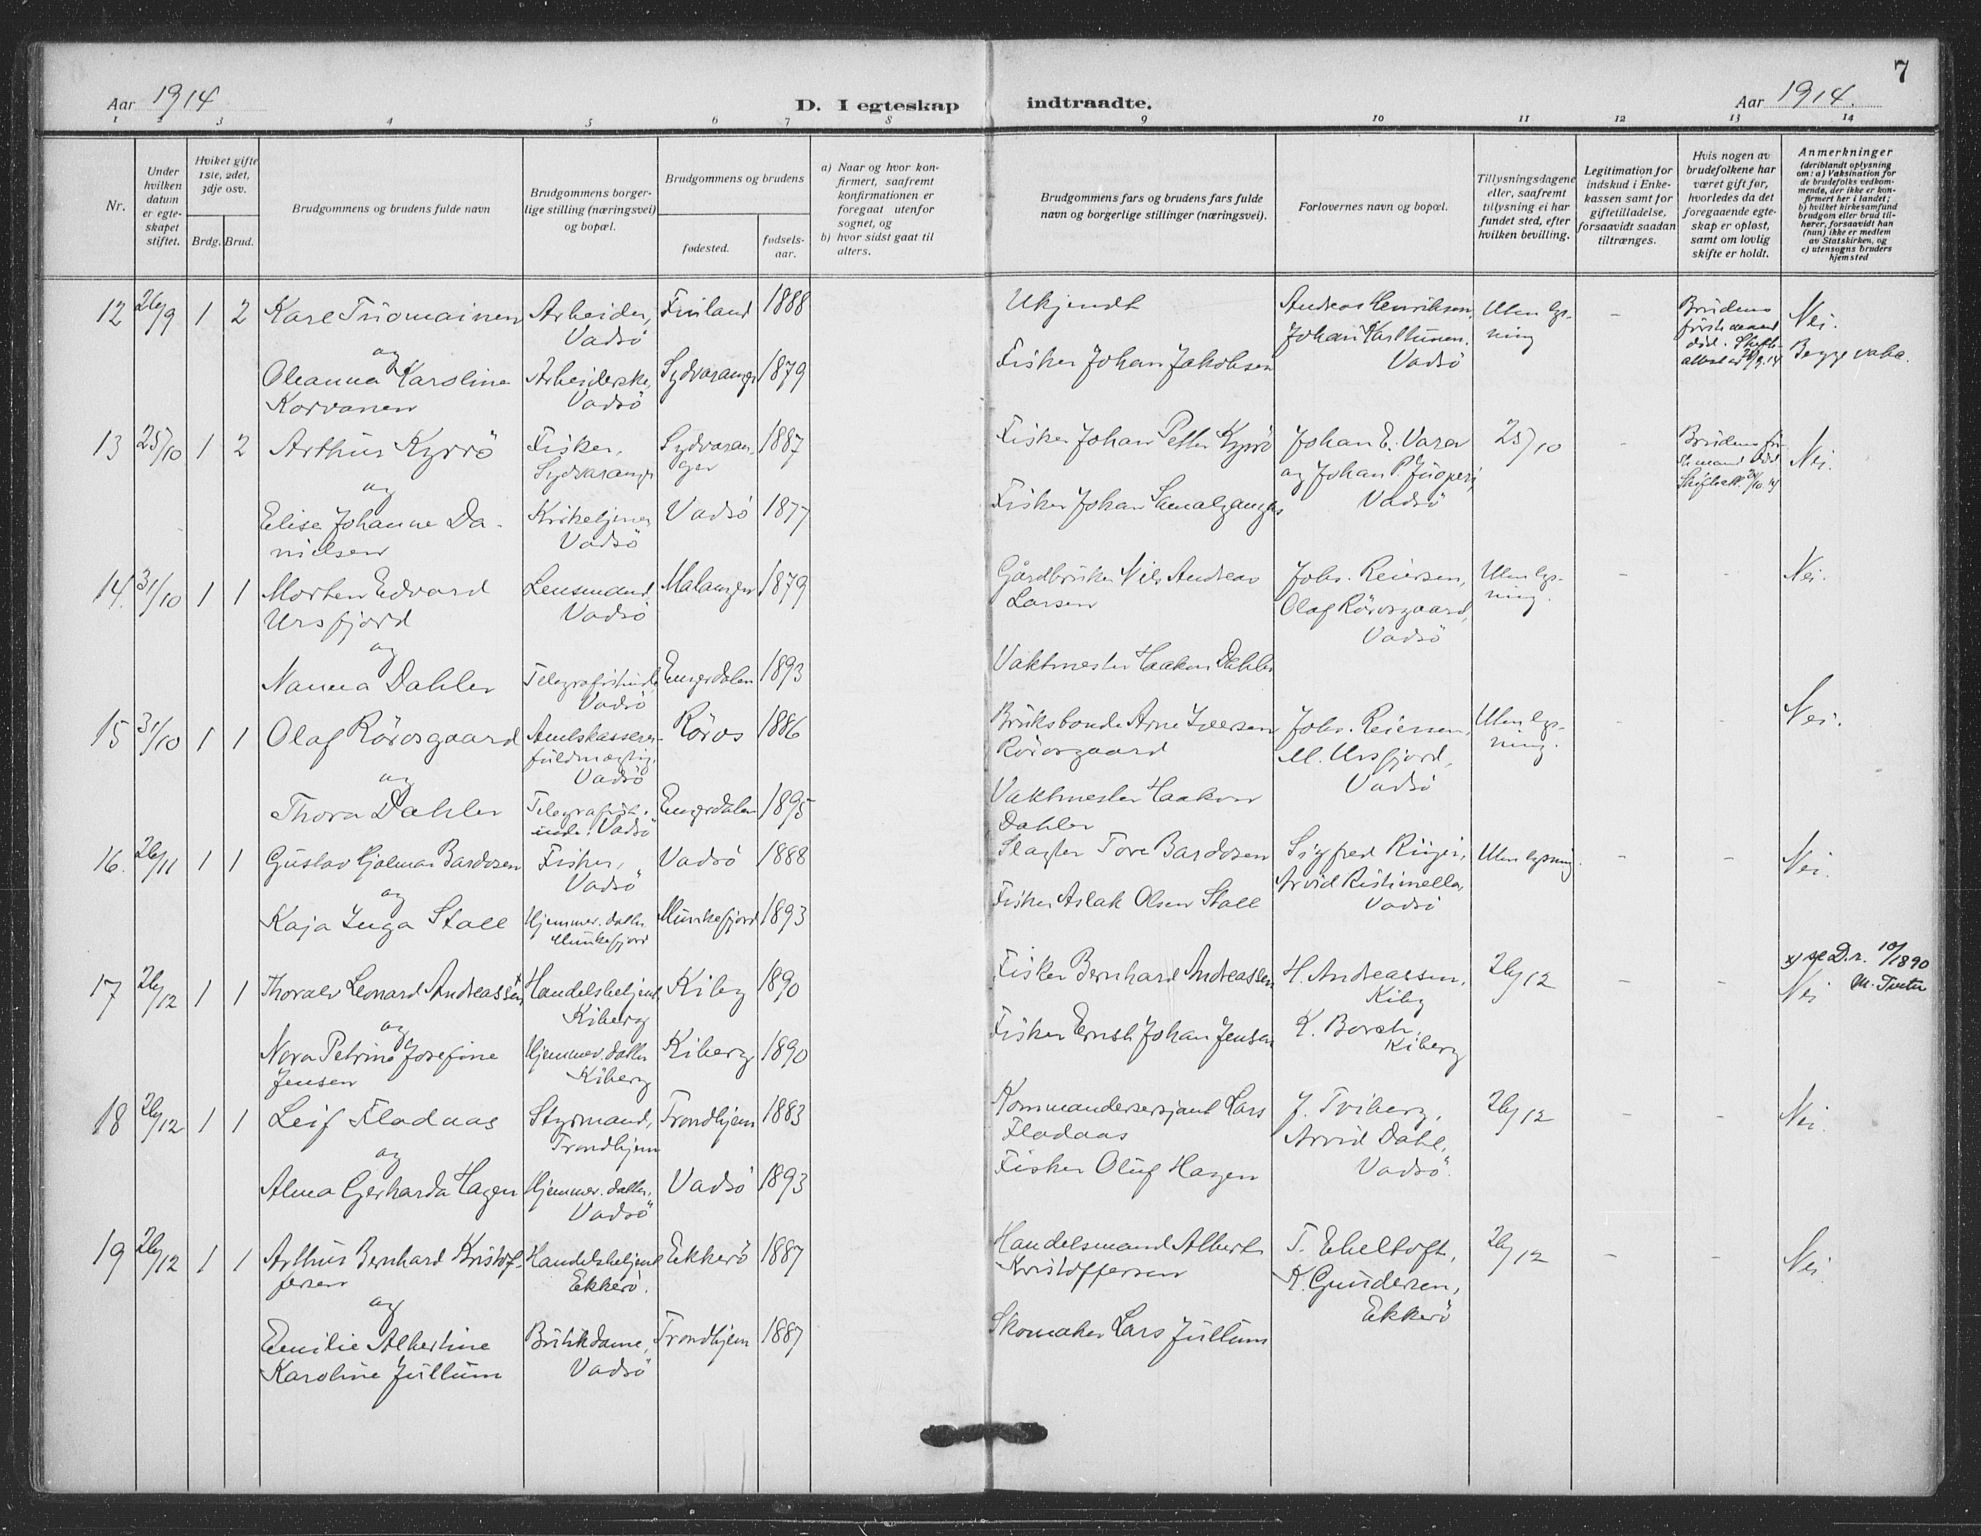 7
Aar 1914
D. I egteskap indtraadte.
Aar 1914.
1 2 3 4 5 6 7 8 9 10 11 12 13 14
Nr.
Under hvilken datum er egteskapet stiftet.
Hviket gifte 1ste, 2det, 3dje osv.
Brdg. Brud.
Brudgommens og brudens fulde navn
Brudgommens borgerlige stilling (næringsvei) og bopæl.
Brudgommens og brudens
fødested.
fødselsaar.
a) Naar og hvor konfirmert, saafremt konfirmationen er foregaat utenfor sognet, og
b) hvor sidst gaat til alters.
Brudgommens fars og brudens fars fulde navn og borgerlige stillinger (næringsvei).
Forlovernes navn og bopæl.
Tillysningsdagene eller, saafremt tillysning ei har fundet sted, efter hvilken bevilling.
Legitimation for indskud i Enkekassen samt for giftetilladelse, forsaavidt saadan tiltrænges.
Hvis nogen av brudefolkene har været gift før, hvorledes da det foregaaende egteskap er opløst, samt om lovlig skifte er holdt.
Anmerkninger
(deriblandt oplysning om: a) Vaksination for de brudefolks vedkommende, der ikke er konfirmert her i landet;
b) hvilket kirkesamfund brudgom eller brud tilhører, forsaavidt han (hun) ikke er medlem av Statskirken, og
c) utensogns bruders hjemsted
12 26/9 1 2 Karl Tuomainen Arbeider, Finland 1888 Ukjendt Andreas Henriksen, Uten lys- - Brudens Nei.
Vadsö Johan Karthunen. ning første mand
og Vadsö død. Skifte
Oleanna Karoline Arbeiderske, Sydvaranger 1879 Fisker Johan Jakobsen Begge vaks.
Korvanen Vadsö
13 25/10 1 2 Arthur Kyrrö Fisker, Sydvaran- 1887 Fisker Johan Petter Kyrrö Johan E. Varer 25/10 - Brudens før- Nei.
Sydvaranger ger og Johan P. ste mand død
og Vadsö
Elise Johanne Da- Vadsö 1877 Fisker Johan
nielsen Vadsö
14. 31/10 1 1 Morten Edvard Lensmand, Malangen 1879 Gårdbruker Nils Andreas Johs. Reiersen, Uten lys- - - Nei.
Ursfjord Vadsö Larsen Olaf Rörosgaard, ning.
og Vadsö
Nanna Dahler Telegrafistinde, Engerdalen 1893 Vaktmester Haakon Dahler
Vadsö
15 31/10 1 1 Olaf Rörosgaard Amtskasserer- Röros 1886 Bruksbonde Arne Iversen Johs. Reiersen, Uten lys- - - Nei.
fuldmægtig, Rörosgaard M. Ursfjord, ning.
og Vadsö Vadsö
Thora Dahler Telegrafist- Engerdalen 1895 Vaktmester Haakon
inde. Vadsö Dahler
16. 26/11 1 1 Gustav Hjalmar Bardosen Fisker, Vadsö 1888 Slagter Tore Bardosen Sigfred Ringer, Uten lysning. - - Nei.
og Vadsö Arvid Ristimella,
Kaja Inga Stall Hjemmev. datter Munkefjord 1893 Fisker Aslak Olsen Stall Vadsö
Munkefjord
17 26/12 1 1 Thoralv Leonard Andreassen Handelsbetjent, Kiby 1890 Fisker Bernhard Andreassen H. Andreassen, 26/12 - - x) se D.r. 10/1890
og Kiberg Kiby Nei
Nora Petrine Josefine Hjemmev. datter Kiberg 1890 Fisker Ernst Johan Jensen K. Borch,
Jensen Kiberg Kiberg
18 26/12 1 1 Leif Fladaas Styrmand, Trondhjem 1883 Kommandersersjant Lars J. Tviberg, 26/12 - - Nei.
og Trondhjem Fladaas Arvid Dahl,
Alma Gerharda Hagen Hjemmev. datter, Vadsö 1893 Fisker Oluf Hagen Vadsö.
Vadsö
19 26/12 1 1 Arthur Bernhard Kristof- Handelsbetjent Ekkerö 1887 Handelsmand Albert T. Eheltoft, 26/12 - - Nei.
fersen Ekkerö. Kristoffersen K. Gundersen,
og Ekkerö
Emilie Albertine Butikdame, Trondhjem 1887 Skomaker Lars Jullum
Karoline Jullum Vadsö